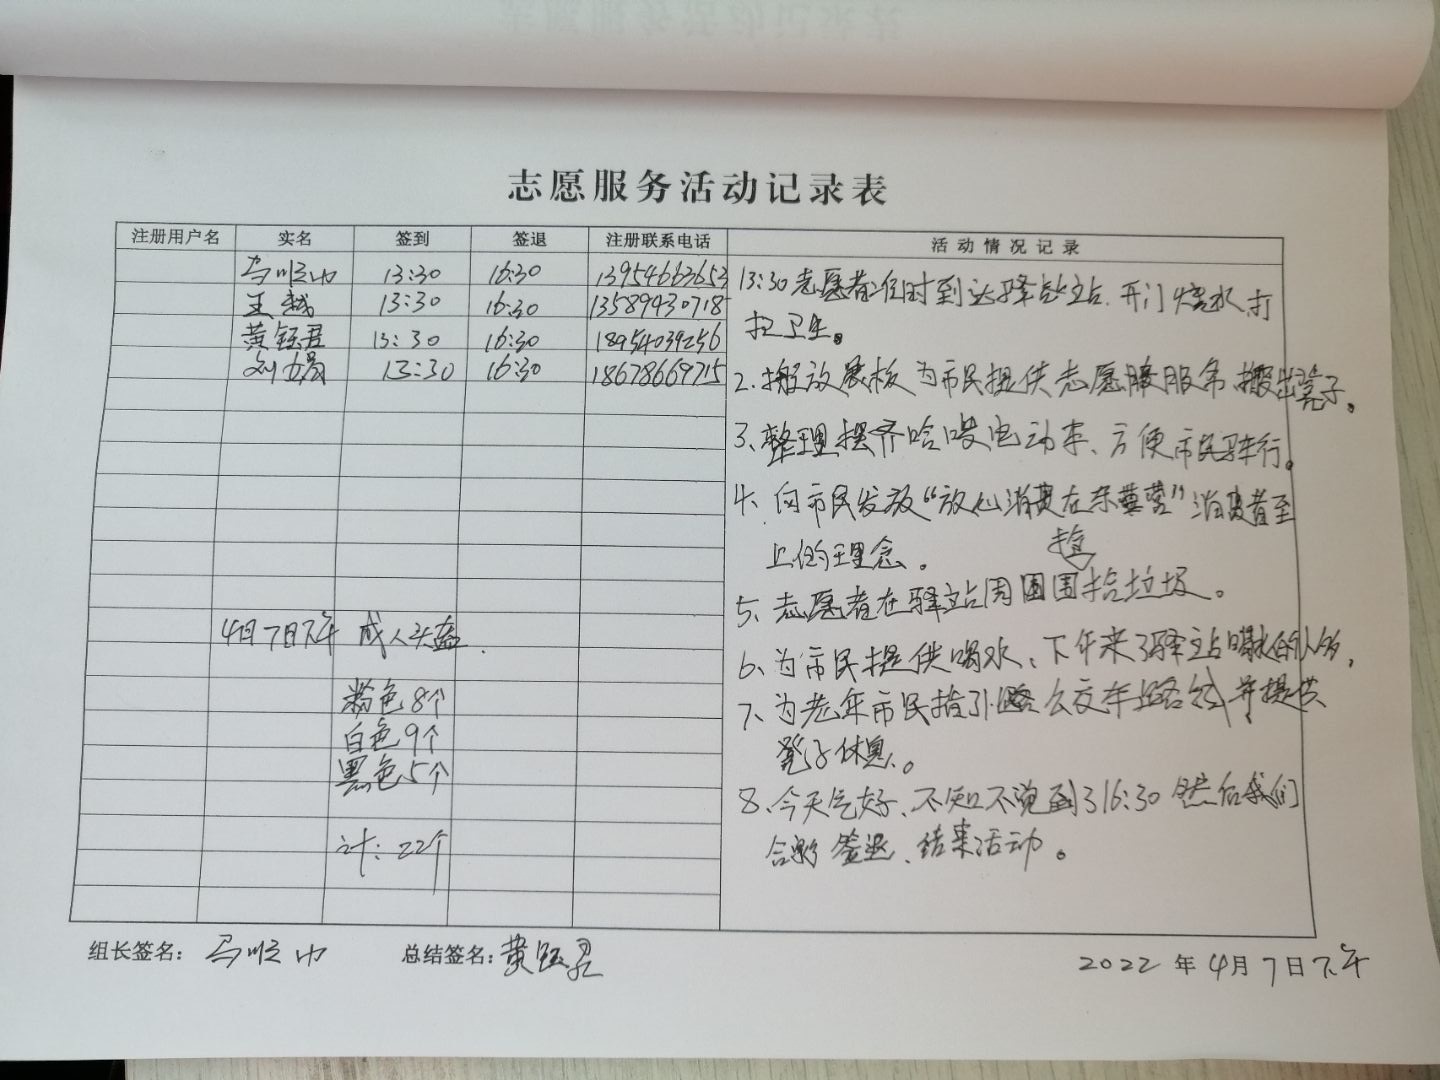 志愿服务活动记录表
注册用户名 实名 签到 签退 注册联系电话 活动情况记录
马顺巾 13:30 16:30 13954663653
王越 13:30 16:30 13589430718
黄钰君 13:30 16:30 18954039256
刘娟 13:30 16:30 18678669715
13:30志愿者准时到达驿站、开门烧水、打
扫卫生。
2、摆放展板为市民提供志愿服务、搬出凳子。
3、整理摆齐哈啰电动车、方便市民骑行。
4、向市民发放“放心消费在东营”消费者至
上的理念。
5、志愿者在驿站周围捡拾垃圾。
6、为市民提供喝水、下午来了驿站喝水的人多,
7、为老年市民指引公交车路线并提供
凳子休息。
8、今天气好、不知不觉到了16:30 然后我们
合影 签退、结束活动。
4月7日下午 成人头盔
粉色8个
白色9个
黑色5个
计:22个
组长签名:马顺巾 总结签名:黄钰君 2022年4月7日下午